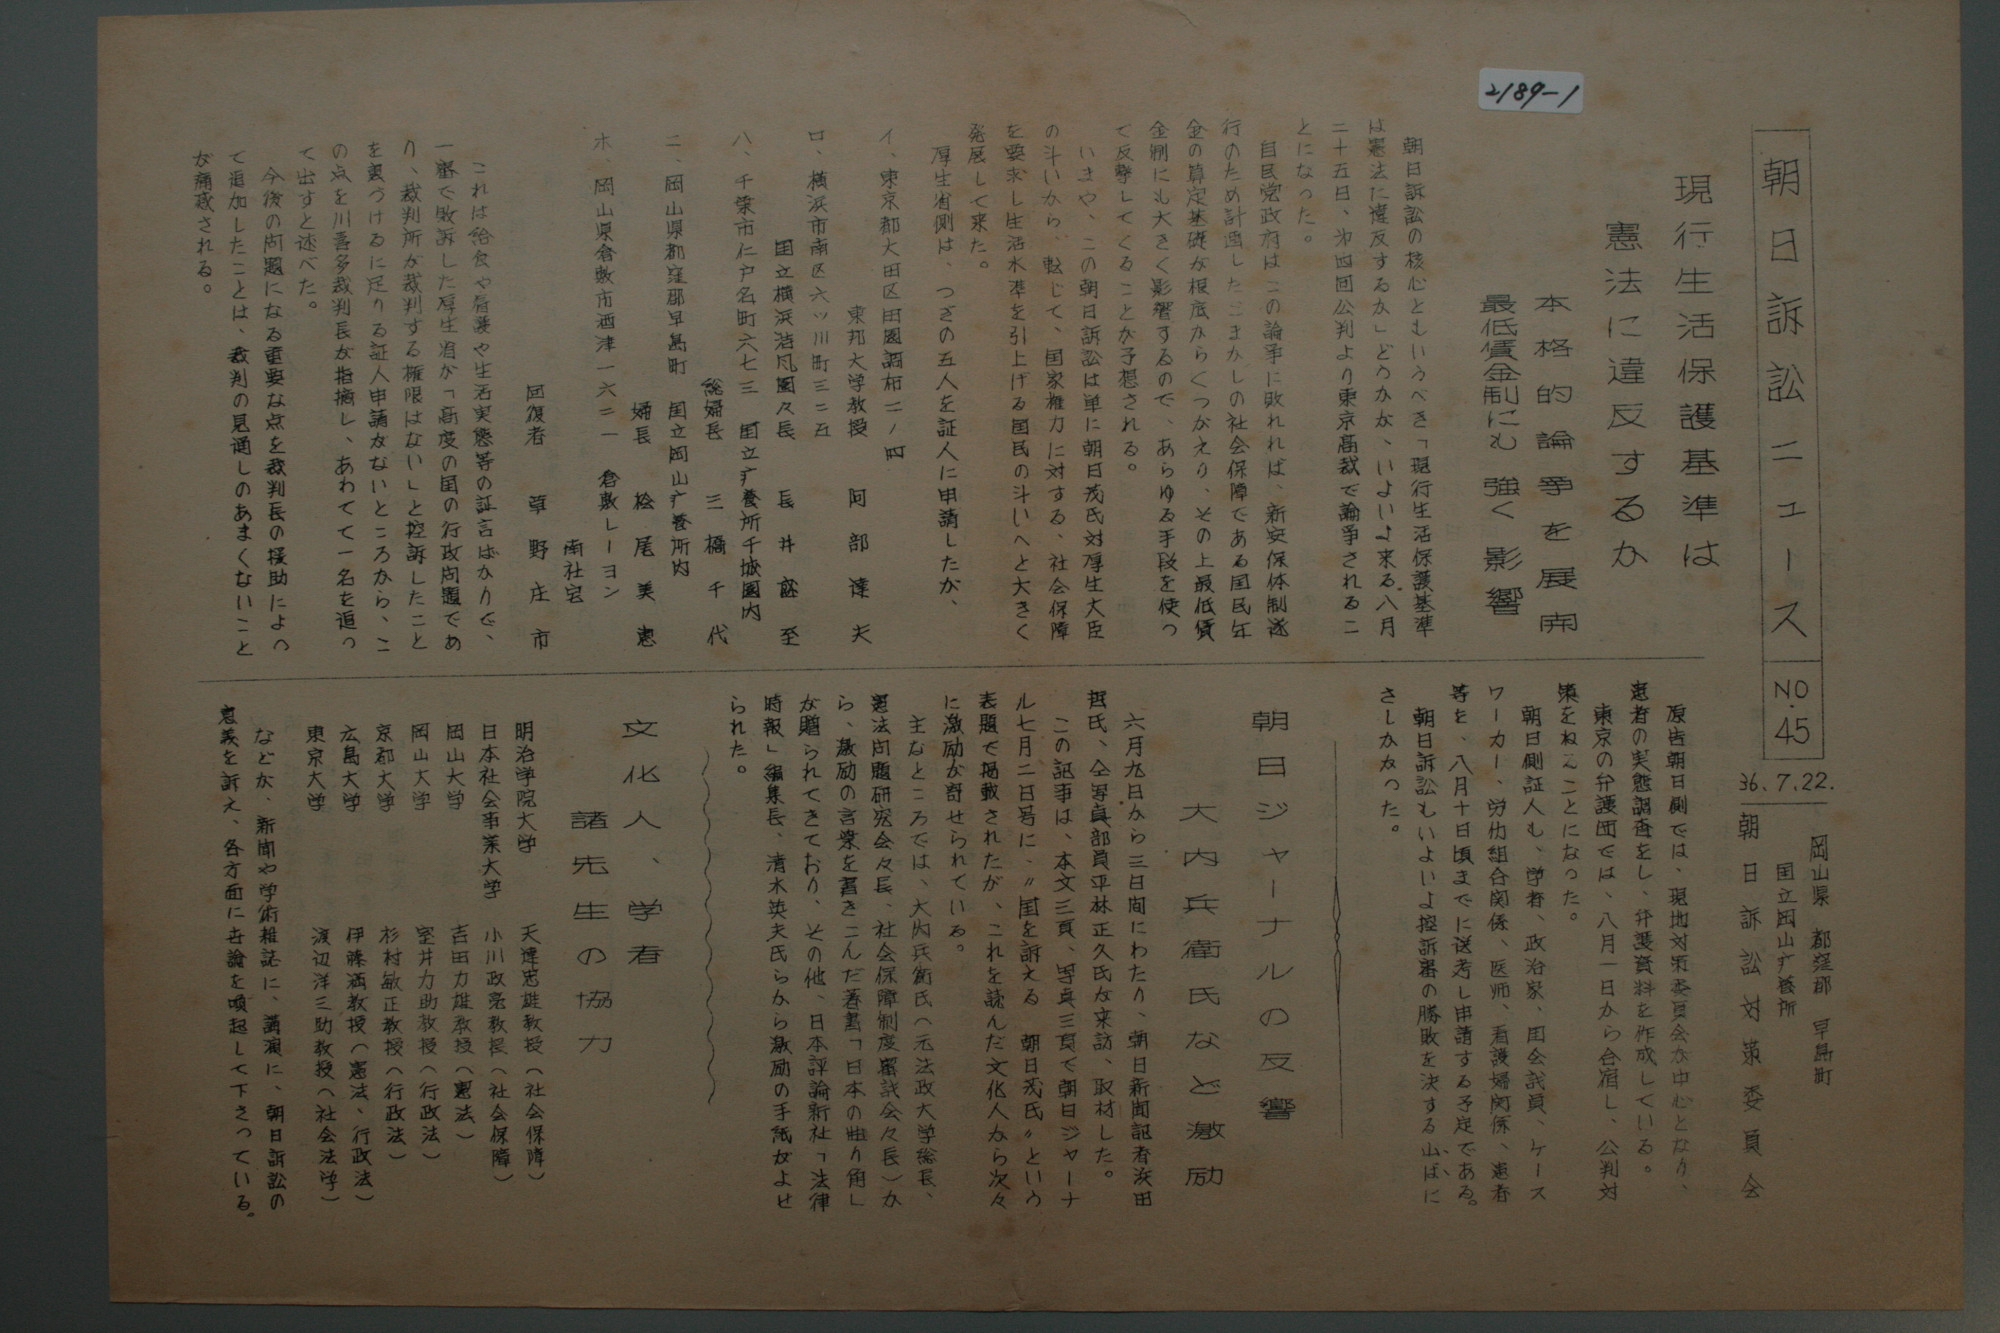 2189-1
朝日訴訟ニュース
NO.45
36.7.22.
岡山県 都窪郡 早島町
国立岡山疒養所
朝日訴訟対策委員会
現行生活保護基準は
憲法に違反するか
本格的論争を展開
最低賃金制にも強く影響
朝日訴訟の核心ともいうべき「現行生活保護基準
は憲法に違反するか」どうかが、いよいよ来る八月
二十五日、㐧四回公判より東京高裁で論争されるこ
とになった。
自民党政府はこの論争に敗れれば、新安保体制遂
行のため計画したごまかしの社会保障である国民年
金の算定基礎が根底からくつがえり、その上最低賃
金制にも大きく影響するので、あらゆる手段を使っ
て反撃してくることが予想される。
いまや、この朝日訴訟は単に朝日茂氏対厚生大臣
の斗いから、転じて、国家権力に対する、社会保障
を要求し生活水準を引上げる国民の斗いへと大きく
発展して来た。
厚生省側は、つぎの五人を証人に申請したが、
イ、東京都大田区田園調布二ノ四
東邦大学教授 阿部達夫
ロ、横浜市南区六ッ川町三二五
国立横浜浩風園々長 長井盛至
ハ、千葉市仁戸名町六七三 国立疒養所千城園内
総婦長 三橋千代
ニ、岡山県都窪郡早島町 国立岡山疒養所内
婦長 桧尾美恵
ホ、岡山県倉敷市酒津一六二一 倉敷レーヨン
南社宅
回復者 草野庄市
これは給食や看護や生活実態等の証言ばかりで、
一審で敗訴した厚生省が「高度の国の行政問題であ
り、裁判所が裁判する権限はない」と控訴したこと
を裏づけるに足りる証人申請がないところから、こ
の点を川喜多裁判長が指摘し、あわてて一名を追っ
て出すと述べた。
今後の問題になる重要な点を裁判長の援助によっ
て追加したことは、裁判の見通しのあまくないこと
が痛感される。
原告朝日側では、現地対策委員会が中心となり、
患者の実態調査をし、弁護資料を作成している。
東京の弁護団では、八月一日から合宿し、公判対
策をねることになった。
朝日側証人も、学者、政治家、国会議員、ケース
ワーカー、労仂組合関係、医师、看護婦関係、患者
等を、八月十日頃までに送考し申請する予定である。
朝日訴訟もいよいよ控訴審の勝敗を決する山ばに
さしかかった。
朝日ジャーナルの反響
大内兵衛氏など激励
六月九日から三日間にわたり、朝日新聞記者浜田
哲氏、仝写真部員平林正久氏が来訪、取材した。
この記事は、本文三頁、写真三頁で朝日ジャーナ
ル七月二日号に、〃国を訴える 朝日茂氏〃という
表題で掲載されたが、これを読んだ文化人から次々
に激励が寄せられている。
主なところでは、大内兵衛氏(元法政大学総長、
憲法問題研究会々長、社会保障制度審議会々長)か
ら、激励の言葉を書きこんだ著書「日本の曲り角」
が贈られてきており、その他、日本評論新社「法律
時報」編集長、清水英夫氏らから激励の手紙がよせ
られた。
文化人、学者
諸先生の協力
明治学院大学 天達忠雄教授(社会保障)
日本社会事業大学 小川政亮教授(社会保障)
岡山大学 吉田力雄教授(憲法)
岡山大学 室井力助教授(行政法)
京都大学 杉村敏正教授(行政法)
広島大学 伊藤満教授(憲法、行政法)
東京大学 渡辺洋三助教授(社会法学)
などが、新聞や学術雑誌に、講演に、朝日訴訟の
意義を訴え、各方面に世論を喚起して下さっている。